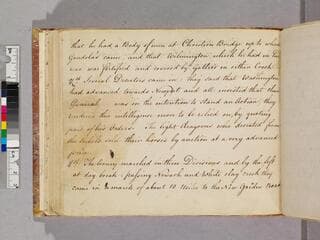 that he had a Body of men at Christien Bridge up to which
Gondolas came, and that Wilmington which he had in his
was was fortified and covered by Gallies in either Creek
7th Several Deserters came in. they said that Washington
had advanced towards Newport and all insisted that their
General was in the intention to Stand an Action; they
rendered this intelligence more to be relied on, by quoting
part of his Orders. The light dragoons who deserted from
the Rebels sold their horses by auction at a very advanced
price.
8th The Army marched in three Divisions and by the left
at day break passing Newark and White clay creek they
came in a march of about 10 Miles to the New Garden Road